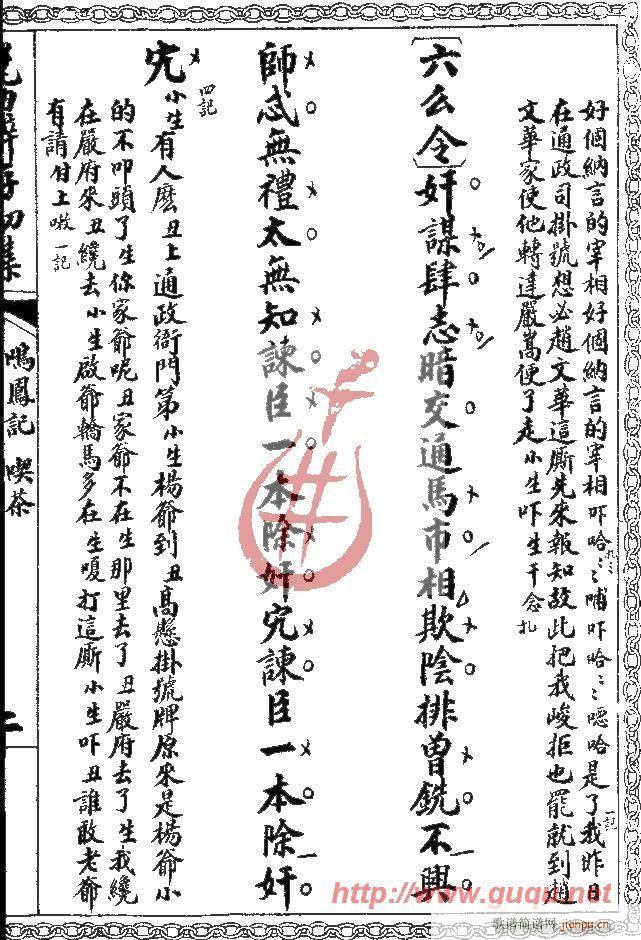 好個納言的宰相好個納言的宰相吓哈〻〻哺吓哈〻〻噁哈是了我昨日
扎〻〻
一記
在通政司掛號想必趙文華這厮先來報知故此把我峻拒也罷就到趙
文華家使他轉達嚴嵩便了走小生吓生干念扎
〔六么令〕奸謀肆志暗交通馬市相欺陰排曾銑不興
師忒無禮太無知諫臣一本除奸宄諫臣一本除奸
宄
四記
小生有人麽丑上通政衙門第小生楊爺到丑高懸掛號牌原來是楊爺小
的不叩頭了生你家爺呢丑家爺不在生那里去了丑嚴府去了生我纔
在嚴府來丑纔去小生啟爺轎馬多在生嗄打這厮小生吓丑誰敢老爺
有請付上嗷一記
鳴鳳記 喫茶
二
http://www.guqu.net
歌谱简谱网 jianpu.cn